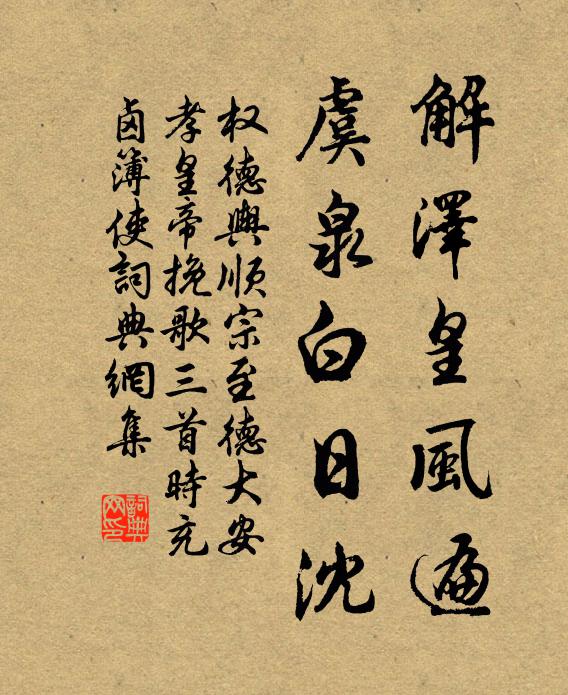 解澤皇風遍
虞泉白日沈
权德輿順宗至德大安
孝皇帝挽歌三首時充
鹵簿使詞典網集
詞典
网印